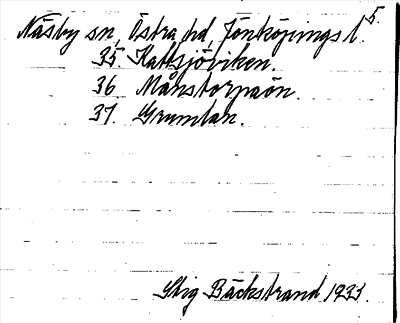 5.
Näsby sn, Östra hd, Jönköpings l.
35. Kattsjöviken.
36 Månstorpaön.
37. Grumlan.
Stig Bäckstrand 1933.